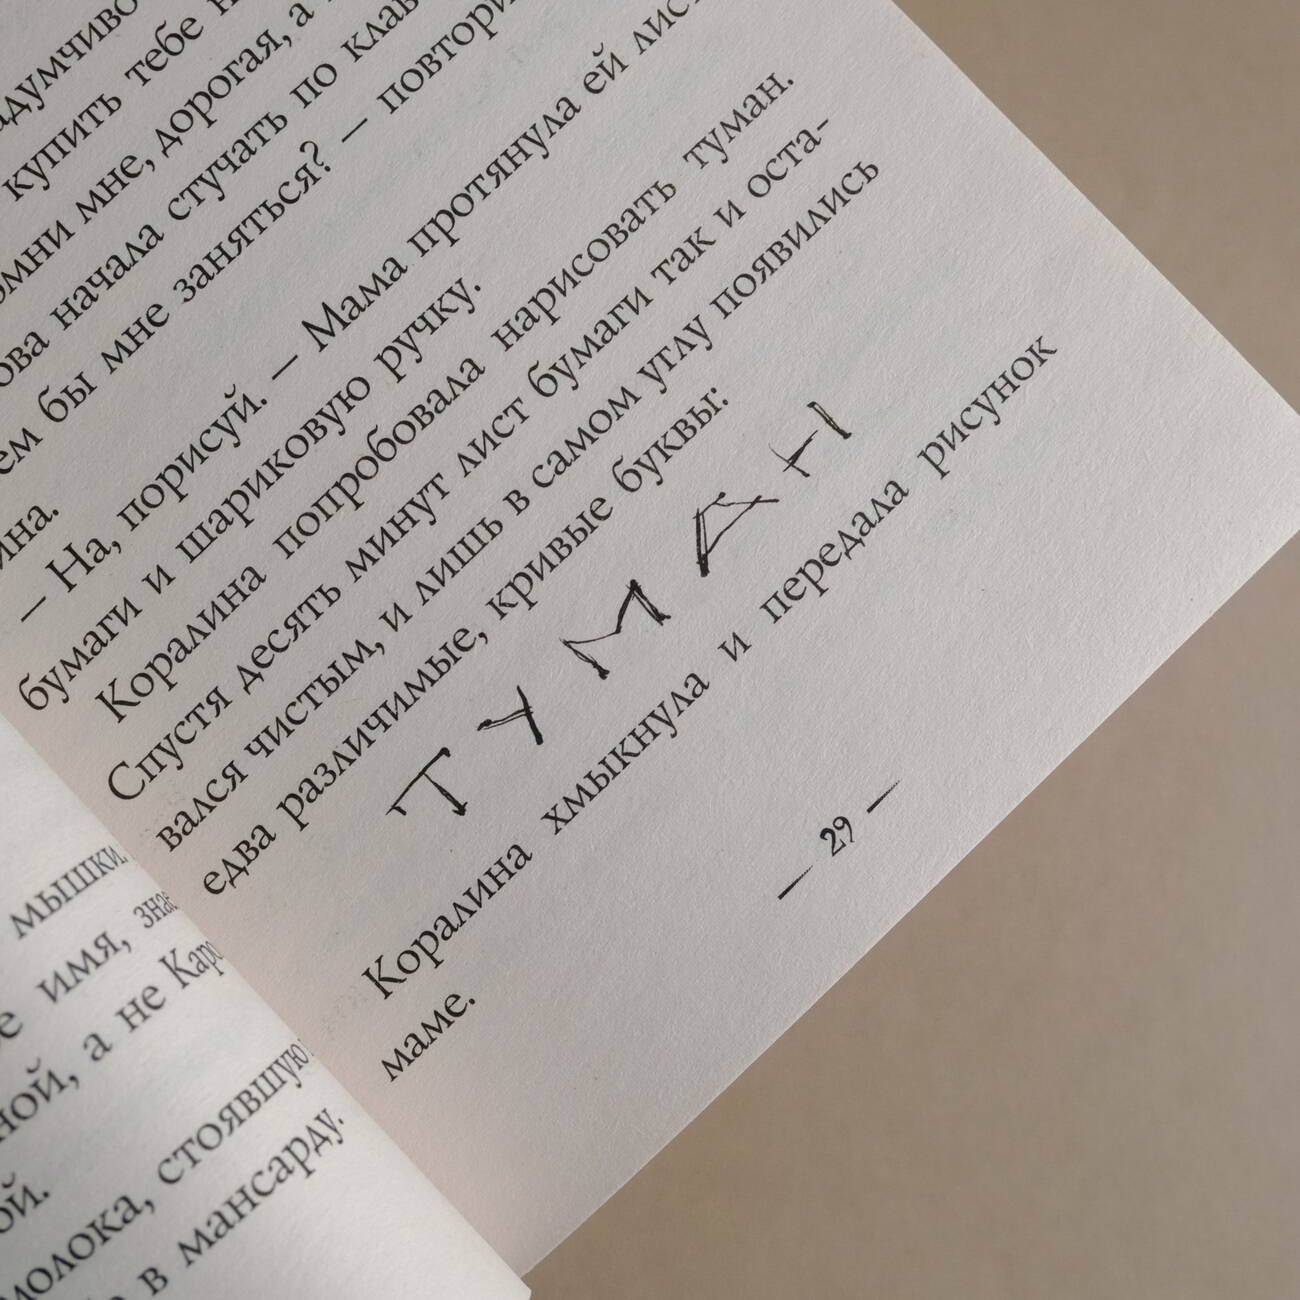 купить тебе
мне, дорогая, а
начала стучать по
бы мне заняться? —
— На, порисуй. — Мама протянула ей
бумаги и шариковую ручку.
Коралина попробовала нарисовать туман.
Спустя десять минут лист бумаги так и оста-
вался чистым, и лишь в самом углу появились
едва различимые, кривые буквы:
ТУМАН
Коралина хмыкнула и передала рисунок
маме.
— 29 —
мышки.
имя,
а не
молока, стоявшую
в мансарду.